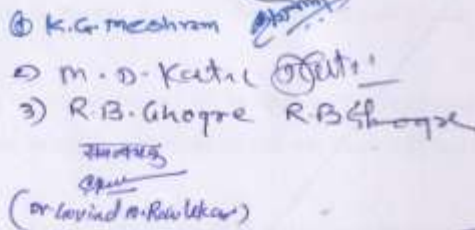 ① K.G. Meshram
2) M.D. Katre
3) R.B. Ghogre R.B Ghogre
समन्वयक
(Dr Govind M. Rawlekar)